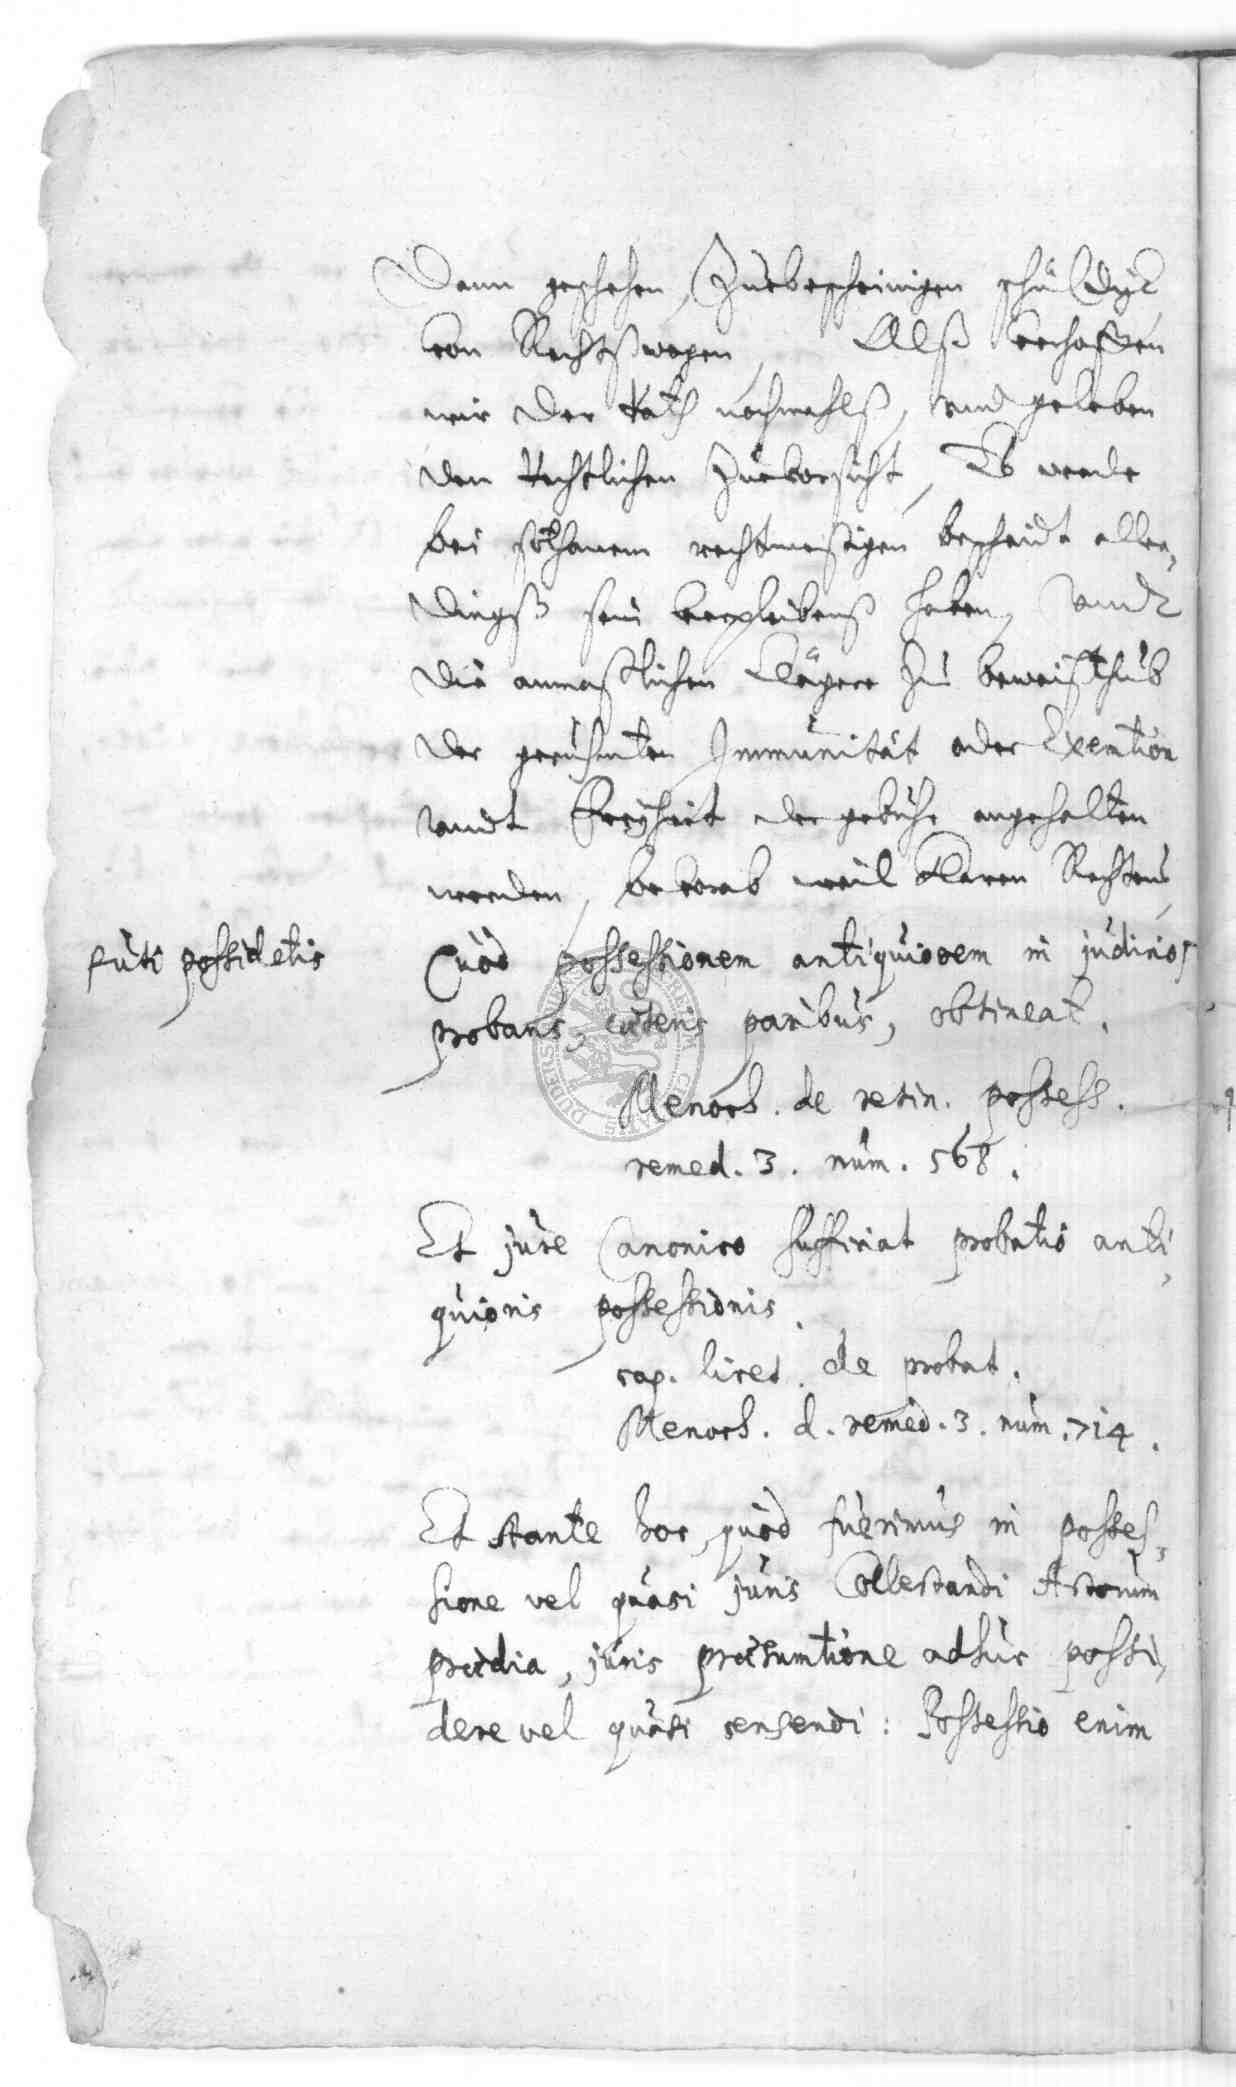 dann geschehen, Zuebescheinigen schuldigk
von Rechtßwegen, Alß verhoffen
wir der Rath nochmahlß, und geleben
den Rechtlichen Zuevorsicht, Es werde
bei solhanem rechtmeßigen bescheidt aller,
dingß sein verpleibenß haben, vndt
die anmaßlichen Clägere zu beweisthub
der gerühmten Immunität oder Exemtion
vndt Freyheit der gebühr angehalten
werden, bevorab weil klaren Rechtens
Quod possessionem antiquiorem in judicio
ſuti possidetis
probans, cæteris paribus, obtineat.
Menoch. de retin. possess.
remed. 3. num. 568.
Et jure Canonico sufficiat probatio anti,
quioris possessionis.
cap. licet. de probat.
Menoch. d. remed. 3. num. 714.
Et stante hoc, quod fuerimus in posses,
sione vel quasi juris Collectandi Actorum
prædia, juris præsumtione adhuc possi,
dere vel quasi censendi: Possessio enim